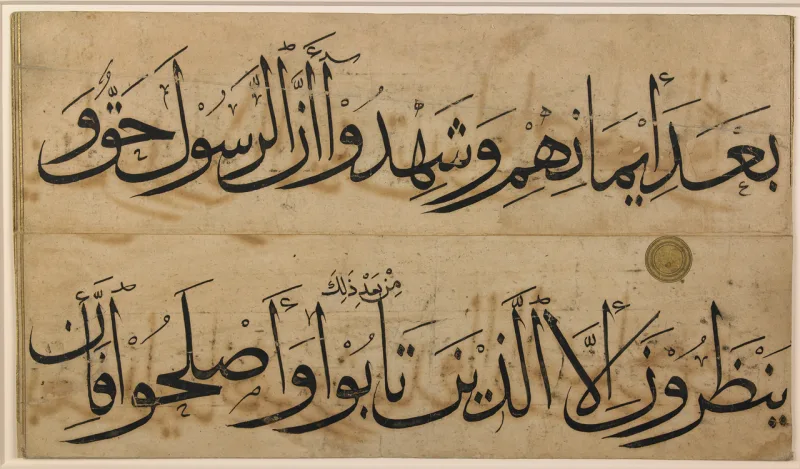 بَعْدَ أِيمَانِهِمْ وَشَهِدُوْا أَنَّ الرَّسُوْلَ حَقٌّ وَ
يَنْظَرُوْنَ إِلَّا الَّذِيْنَ تَابُوْا مِنْ بَعْدِ ذَلِكَ وَأَصْلَحُوْا فَأِنَّ